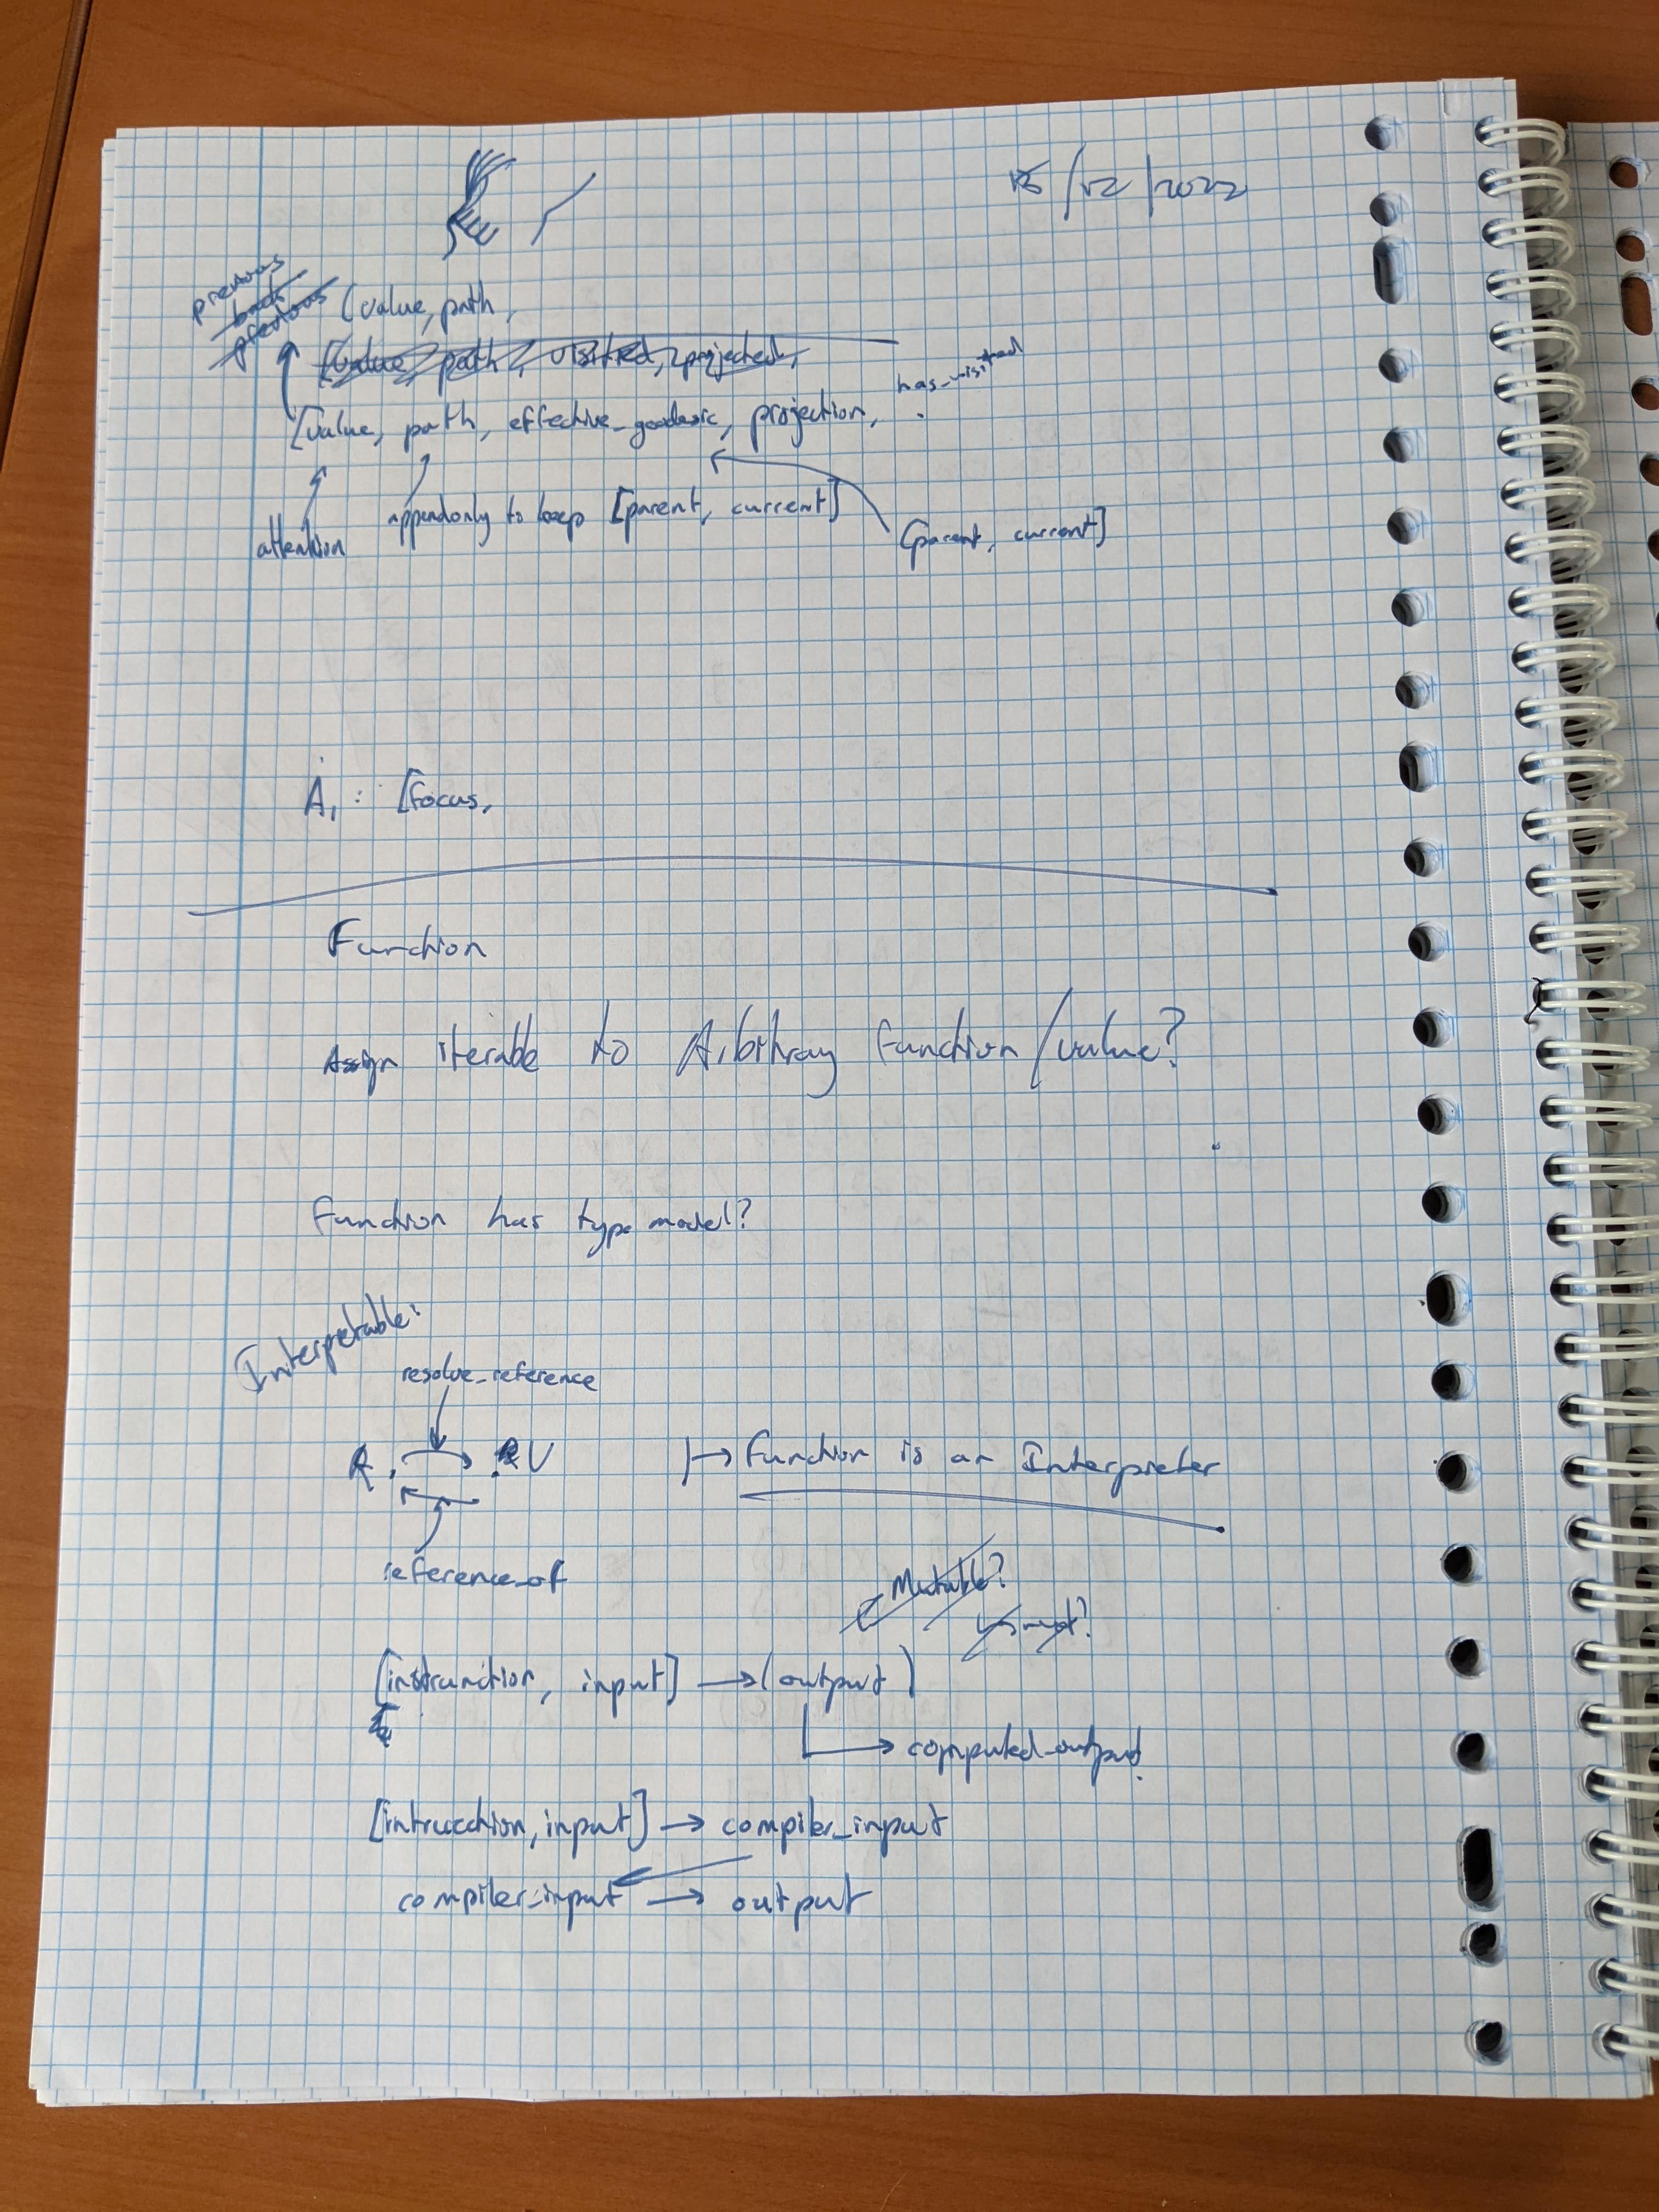 /12/2022
previous
back
previous
(value, path,
[value, path, visited, projected,
has_visited
[value, path, effective_geodesic, projection,
attention
appendonly to keep [parent, current]
[parent, current]
A, : [focus,
Function
Assign iterable to Arbitray function/value?
function has type model?
Interpretable:
resolve_reference
R . . V
|→ function is an Interpreter
reference_of
Mutable?
[instrunction, input] → (output)
→ computed_output
[intrucction, input] → compiler_input
compiler_input → output